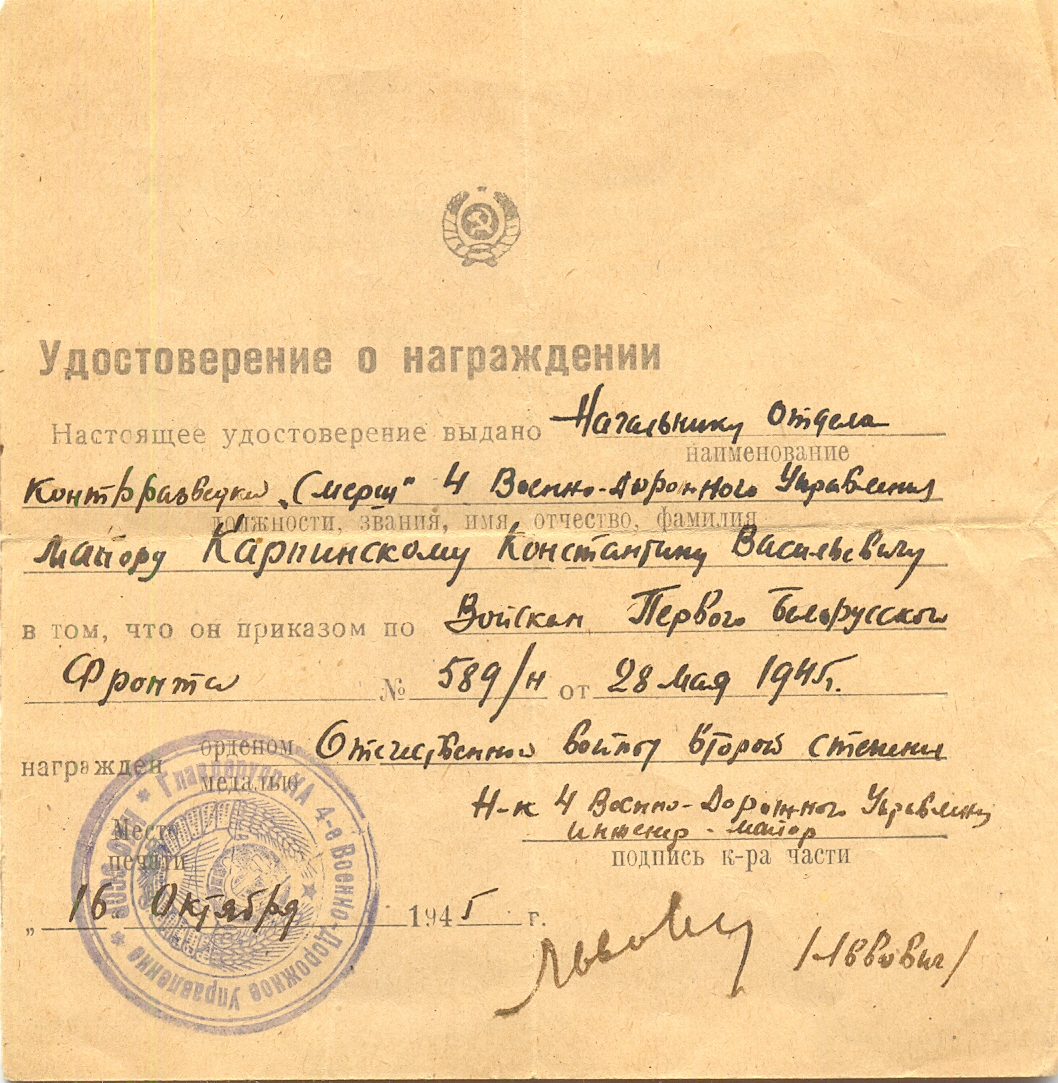 Удостоверение о награждении
Настоящее удостоверение выдано Начальнику Отдела
наименование
Контрразведки „Смерш" 4 Военно-Дорожного Управления
должности, звания, имя, отчество, фамилия
Майору Карпинскому Константину Васильевичу
в том, что он приказом по Войскам Первого Белорусского
Фронта № 589/н от 28 мая 1945г.
награжден орденом медалью Отечественной войны второй степени
Н-к 4 Военно-Дорожного Управления
инженер-майор
подпись к-ра части
Место
печати
„16" Октября 1945 г.
Львович /Львович/
4-е Военно-Дорожное Управление